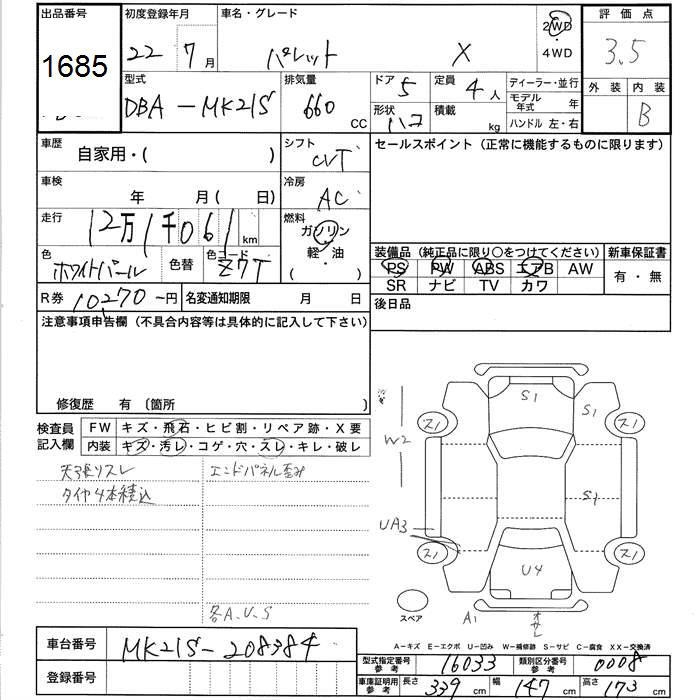 出品番号
1685
初度登録年月
22 7月
車名・グレード
パレット X
2WD
・
4WD
評価点
3.5
外装 内装
B
型式
DBA-MK21S
排気量
660
CC
ドア 5
形状 ハコ
定員 4人
積載 kg
ディーラー・並行
モデル年式 年
ハンドル 左・右
車歴
自家用・( )
シフト
CVT
セールスポイント (正常に機能するものに限ります)
車検
年 月( 日)
冷房
AC
走行
12万1千061km
燃料
ガソリン
軽・油
( ・ )
色
ホワイトパール
色替
色コード
Z7T
装備品 (純正品に限り○をつけてください)
PS PW ABS エアB AW
SR ナビ TV カワ
新車保証書
有・無
R券 10270円
名変通知期限 月 日
後日品
注意事項申告欄 (不具合内容等は具体的に記入して下さい)
修復歴 有 〔箇所 〕
検査員
記入欄
FW キズ・飛石・ヒビ割・リペア跡・X要
内装 キズ・汚レ・コゲ・穴・スレ・キレ・破レ
天張りスレ
タイヤ4本積込
エンドパネル歪み
各A.U.S
S1
S1
スリ
スリ
W2
S1
UA3
スリ
スリ
U4
A1
スペア
A-キズ E-エクボ U-凹み W-補修跡 S-サビ C-腐食 XX-交換済
車台番号
MK21S-208384
登録番号
型式指定番号
参考
16033
類別区分番号
参考
0008
車庫証明用
参考
長さ 339 cm
幅 147 cm
高さ 173 cm